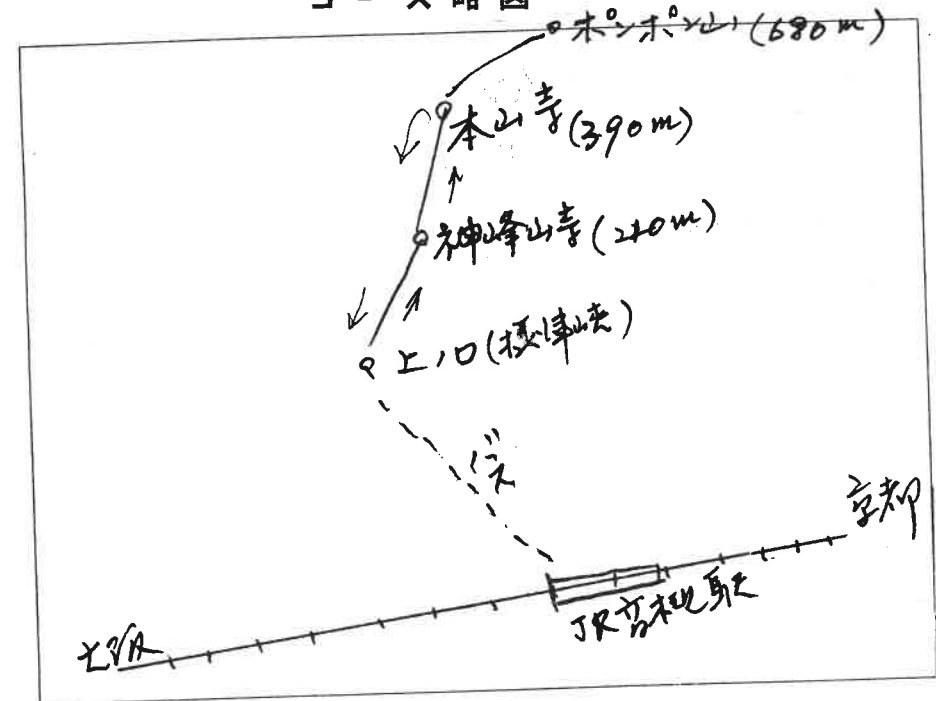 コース略図
ポンポン山(680m)
本山寺(390m)
神峰山寺(210m)
上ノ口(摂津峡)
バス
京都
JR高槻駅
大阪